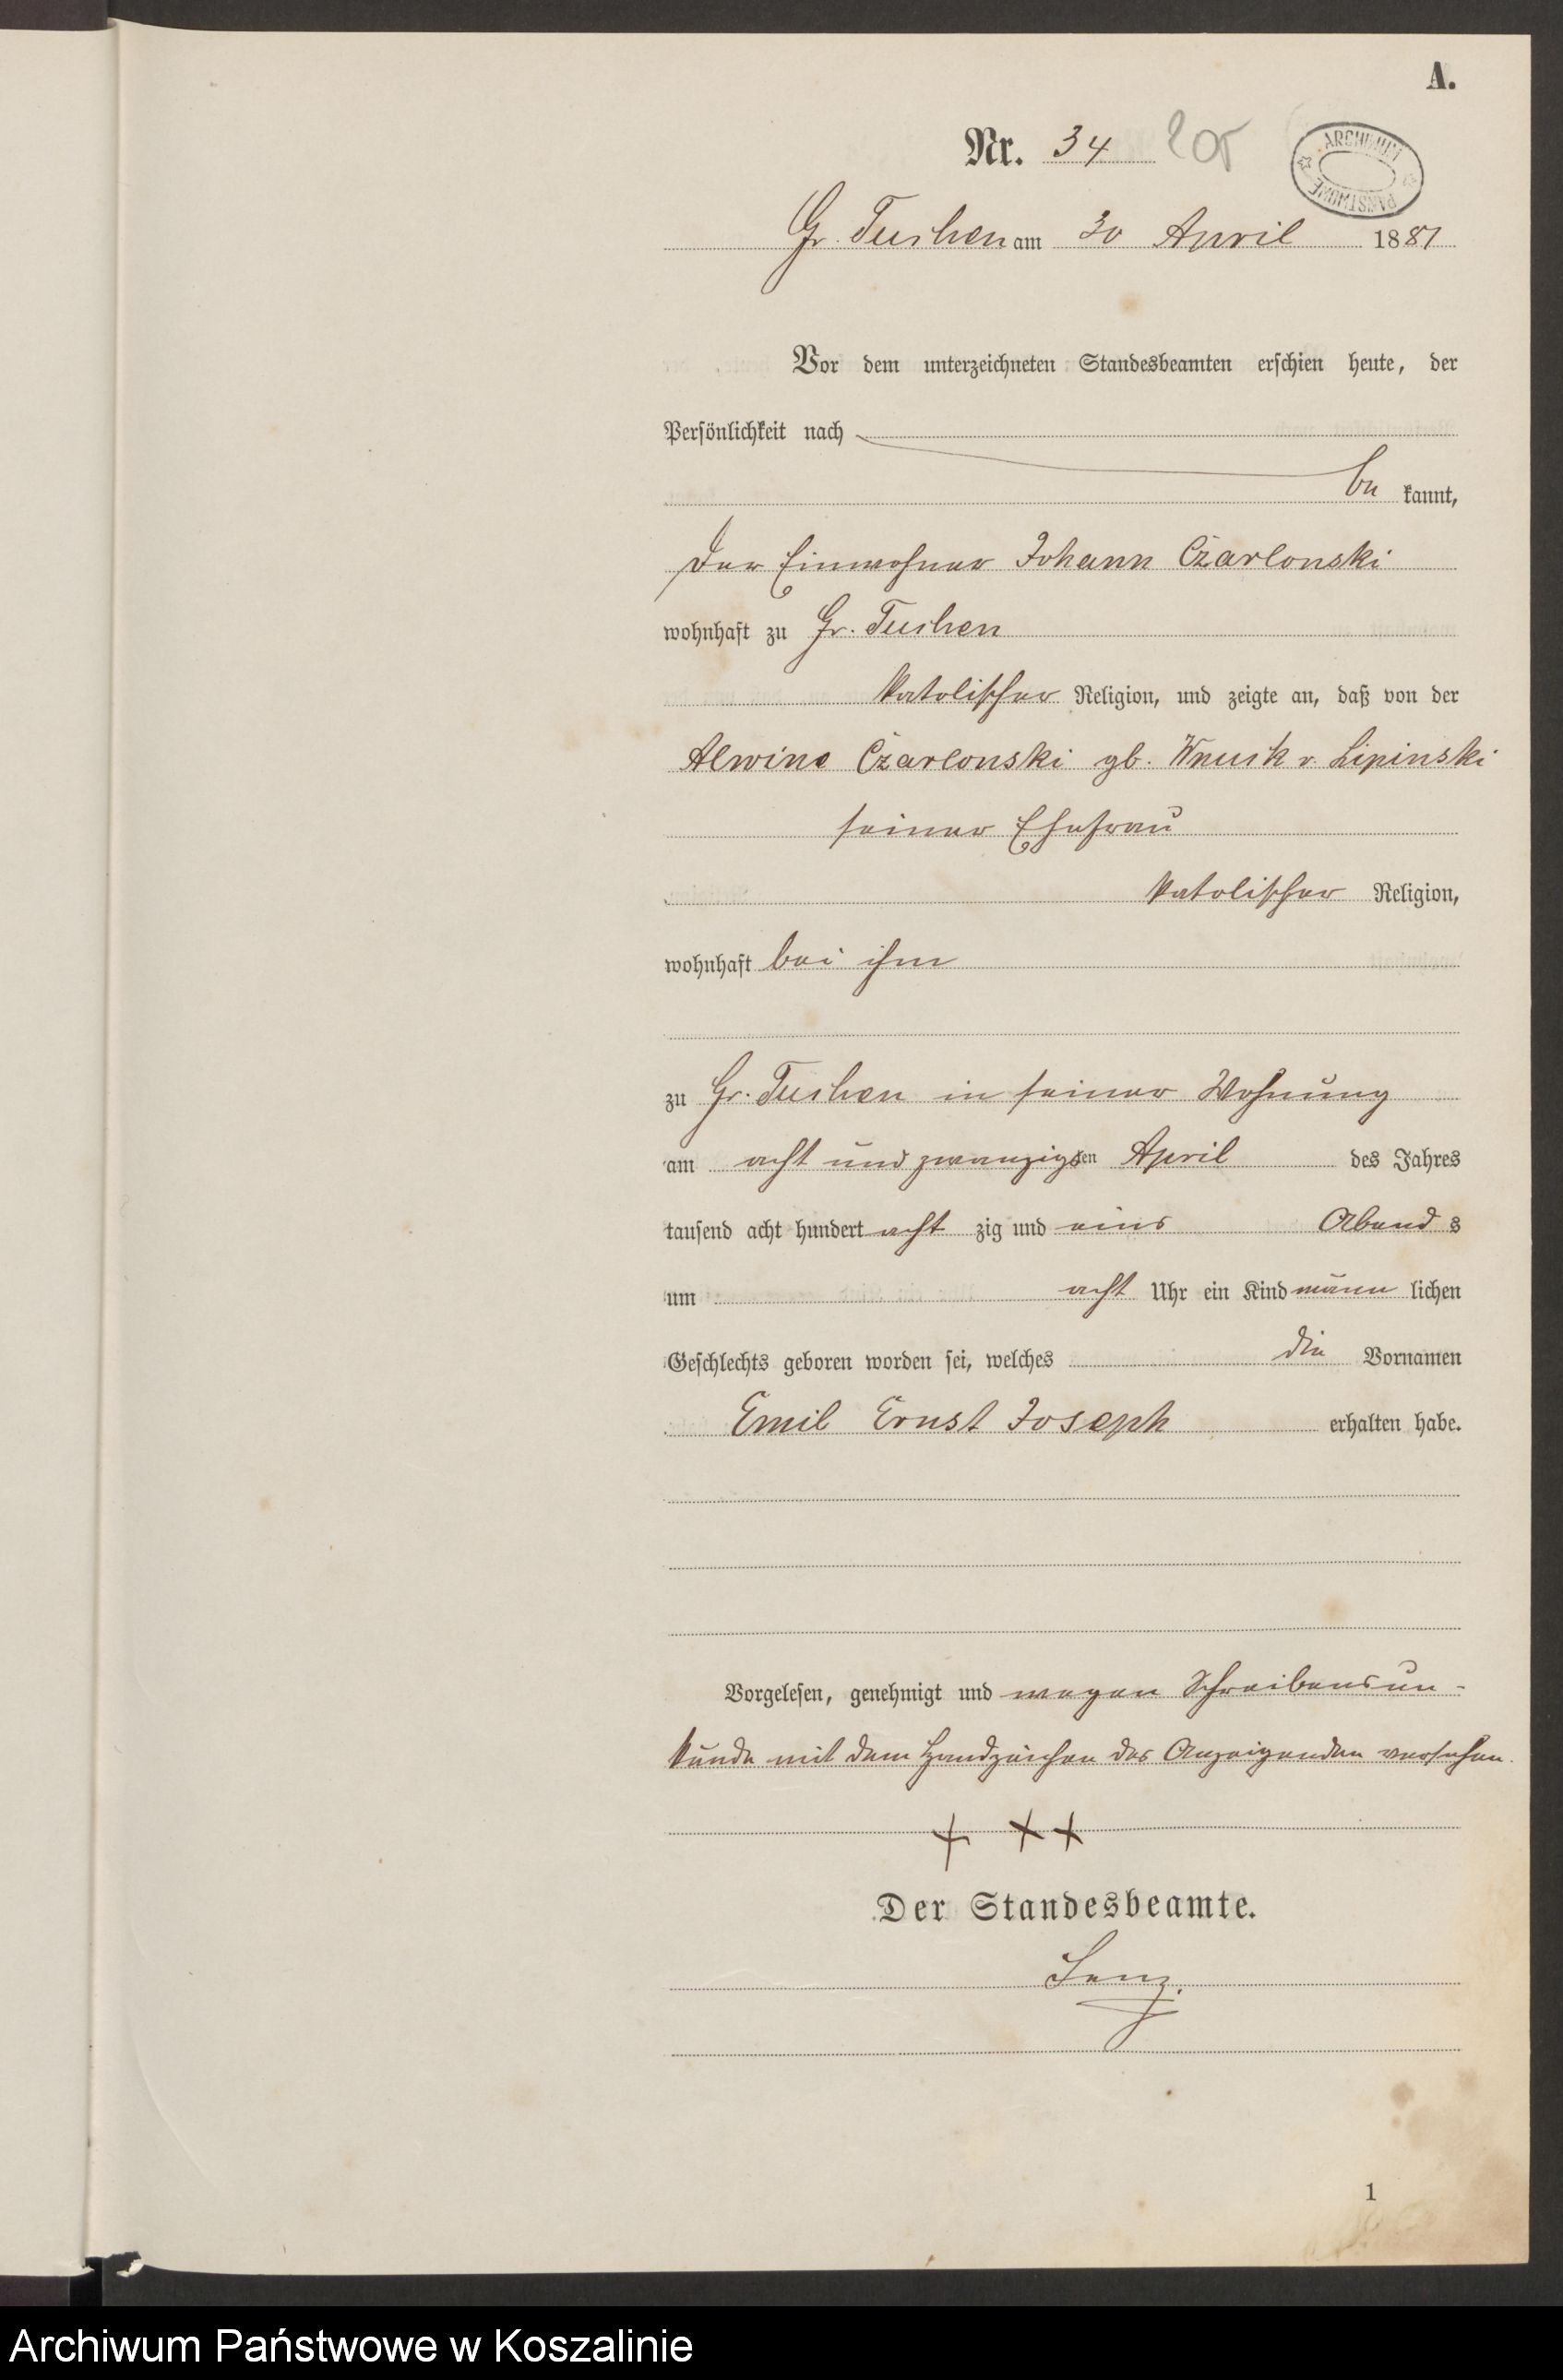 A.
Nr. 34 205
ARCHIWUM PAŃSTWOWE
Gr. Tuchen am 30 April 1881
Vor dem unterzeichneten Standesbeamten erschien heute, der
Persönlichkeit nach
be kannt,
der Einwohner Johann Czarlonski
wohnhaft zu Gr. Tuchen
katolischer Religion, und zeigte an, daß von der
Alwine Czarlonski gb. Wnuk v. Lipinski
seiner Ehefrau
katolischer Religion,
wohnhaft bei ihm
zu Gr. Tuchen in seiner Wohnung
am acht und zwanzigsten April des Jahres
tausend acht hundert acht zig und eins Abend s
um acht Uhr ein Kind männ lichen
Geschlechts geboren worden sei, welches die Vornamen
Emil Ernst Joseph erhalten habe.
Vorgelesen, genehmigt und wegen Schreibensun-
kunde mit dem Handzeichen des Anzeigenden versehen.
+ + +
Der Standesbeamte.
Lenz.
1
Archiwum Państwowe w Koszalinie